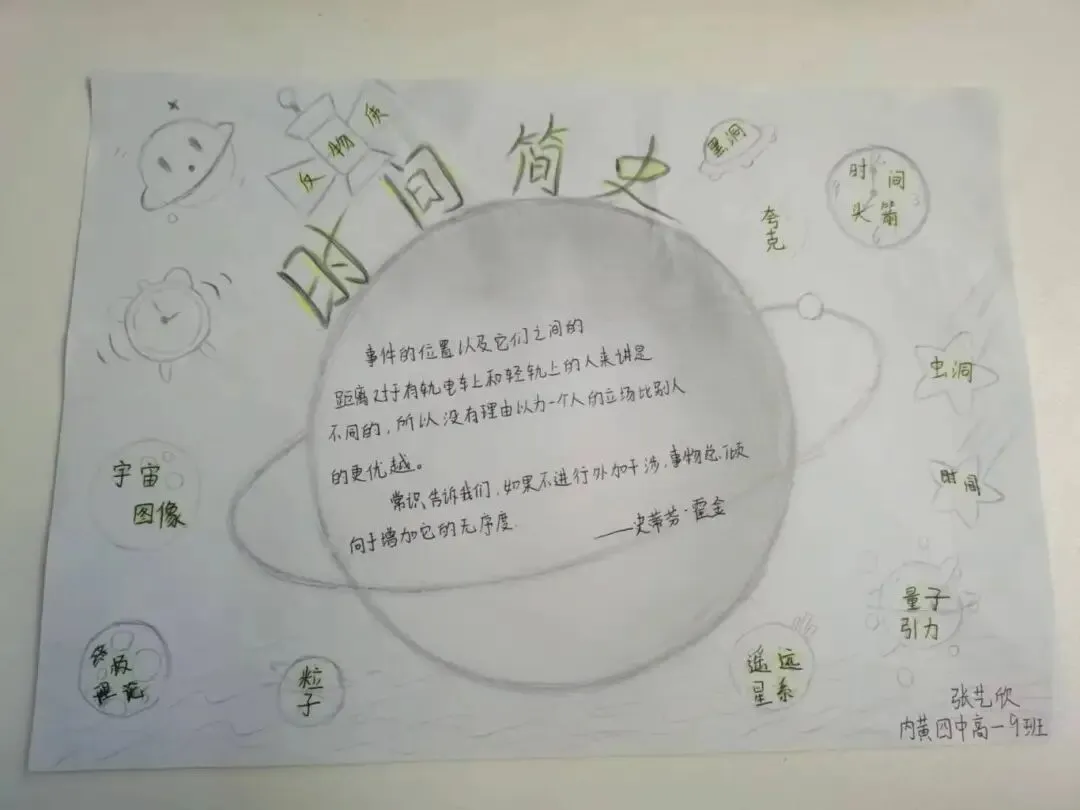 时间简史
反物质
黑洞
时间
头箭
夸克
虫洞
时间
宇宙
图像
事件的位置以及它们之间的
距离对于有轨电车上和轻轨上的人来讲是
不同的，所以没有理由以为一个人的立场比别人
的更优越。
常识告诉我们，如果不进行外加干涉，事物总倾
向于增加它的无序度.
——史蒂芬·霍金
量子
引力
粒子
遥远
星系
张艺欣
内黄四中高一9班